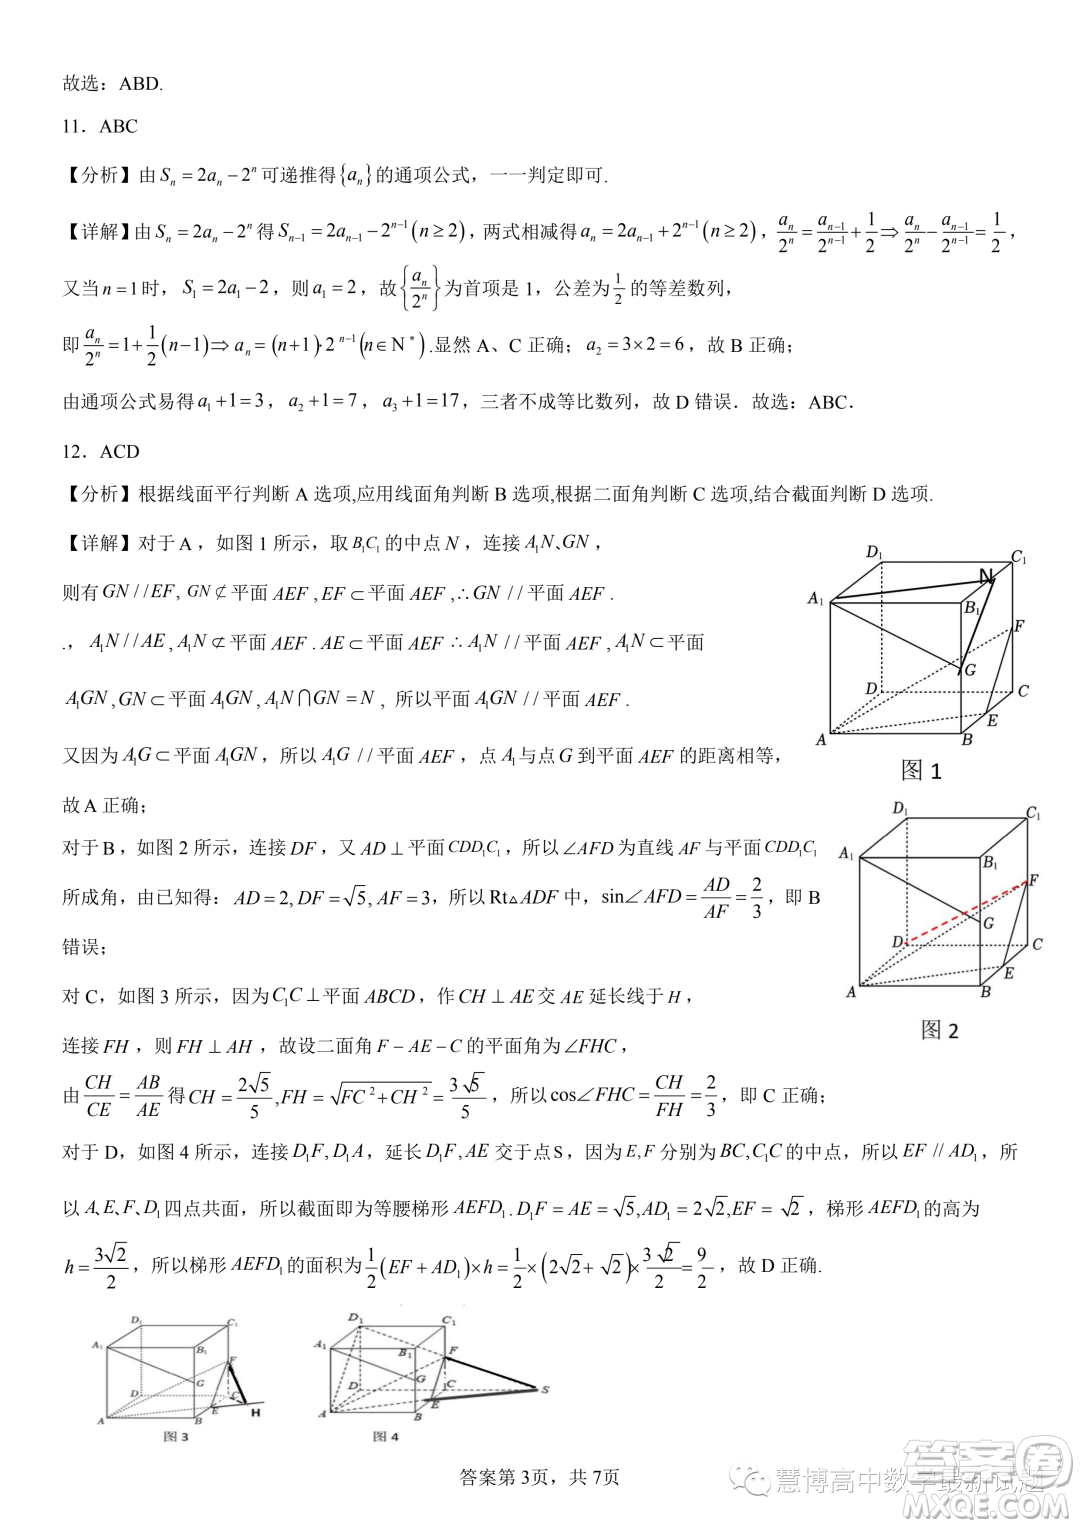 故选：ABD.
11．ABC
【分析】由 Sₙ = 2aₙ − 2ⁿ 可递推得{aₙ}的通项公式，一一判定即可.
【详解】由 Sₙ = 2aₙ − 2ⁿ 得 Sₙ₋₁ = 2aₙ₋₁ − 2ⁿ⁻¹(n ≥ 2)，两式相减得 aₙ = 2aₙ₋₁ + 2ⁿ⁻¹(n ≥ 2)，aₙ/2ⁿ = aₙ₋₁/2ⁿ⁻¹ + 1/2 ⇒ aₙ/2ⁿ − aₙ₋₁/2ⁿ⁻¹ = 1/2，
又当 n = 1 时，S₁ = 2a₁ − 2，则 a₁ = 2，故 {aₙ/2ⁿ} 为首项是 1，公差为 1/2 的等差数列，
即 aₙ/2ⁿ = 1 + 1/2(n − 1) ⇒ aₙ = (n + 1)·2ⁿ⁻¹(n ∈ N*).显然 A、C 正确；a₂ = 3×2 = 6，故 B 正确；
由通项公式易得 a₁ + 1 = 3，a₂ + 1 = 7，a₃ + 1 = 17，三者不成等比数列，故 D 错误．故选：ABC．
12．ACD
【分析】根据线面平行判断 A 选项,应用线面角判断 B 选项,根据二面角判断 C 选项,结合截面判断 D 选项.
【详解】对于 A，如图 1 所示，取 B₁C₁ 的中点 N，连接 A₁N、GN，
则有 GN // EF, GN ⊄ 平面 AEF , EF ⊂ 平面 AEF ,∴ GN // 平面 AEF .
.，A₁N // AE , A₁N ⊄ 平面 AEF . AE ⊂ 平面 AEF ∴ A₁N // 平面 AEF , A₁N ⊂ 平面
A₁GN , GN ⊂ 平面 A₁GN , A₁N ⋂ GN = N , 所以平面 A₁GN // 平面 AEF .
又因为 A₁G ⊂ 平面 A₁GN，所以 A₁G // 平面 AEF，点 A₁与点 G 到平面 AEF 的距离相等，
故 A 正确；
对于 B，如图 2 所示，连接 DF，又 AD ⊥ 平面 CDD₁C₁，所以 ∠AFD 为直线 AF 与平面 CDD₁C₁
所成角，由已知得：AD = 2, DF = √5, AF = 3，所以 Rt△ADF 中，sin∠AFD = AD/AF = 2/3，即 B
错误；
对 C，如图 3 所示，因为 C₁C ⊥ 平面 ABCD，作 CH ⊥ AE 交 AE 延长线于 H，
连接 FH，则 FH ⊥ AH，故设二面角 F − AE − C 的平面角为 ∠FHC，
由 CH/CE = AB/AE 得 CH = 2√5/5, FH = √(FC² + CH²) = 3√5/5，所以 cos∠FHC = CH/FH = 2/3，即 C 正确；
对于 D，如图 4 所示，连接 D₁F, D₁A，延长 D₁F, AE 交于点 S，因为 E, F 分别为 BC, C₁C 的中点，所以 EF // AD₁，所
以 A、E、F、D₁ 四点共面，所以截面即为等腰梯形 AEFD₁. D₁F = AE = √5, AD₁ = 2√2, EF = √2，梯形 AEFD₁ 的高为
h = 3√2/2，所以梯形 AEFD₁ 的面积为 1/2(EF + AD₁)×h = 1/2×(2√2 + √2)×3√2/2 = 9/2，故 D 正确.
D₁ C₁ N A₁ B₁ F G D C E A B
图 1
D₁ C₁ A₁ B₁ F G D C E A B
图 2
D₁ C₁ A₁ B₁ F G D C E H A B
图 3
D₁ C₁ A₁ B₁ F G D C S E A B
图 4
答案第 3页，共 7页
慧博高中数学最新试题
答案圈
MXQE.COM